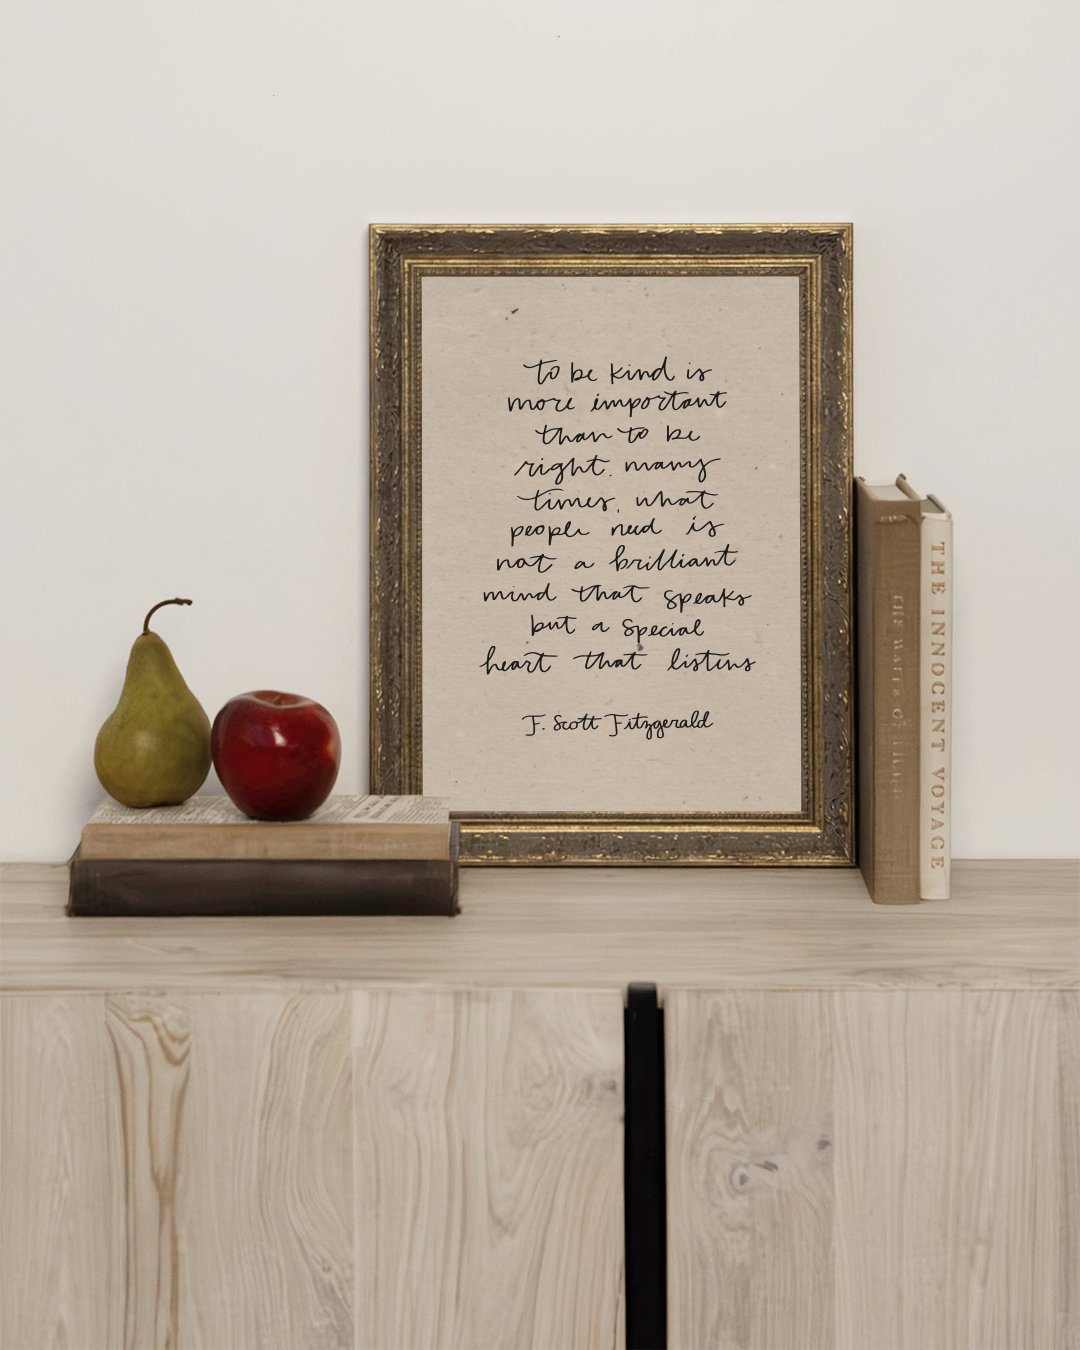 to be kind is
more important
than to be
right. many
times, what
people need is
not a brilliant
mind that speaks
but a special
heart that listens
F. Scott Fitzgerald
THE INNOCENT VOYAGE